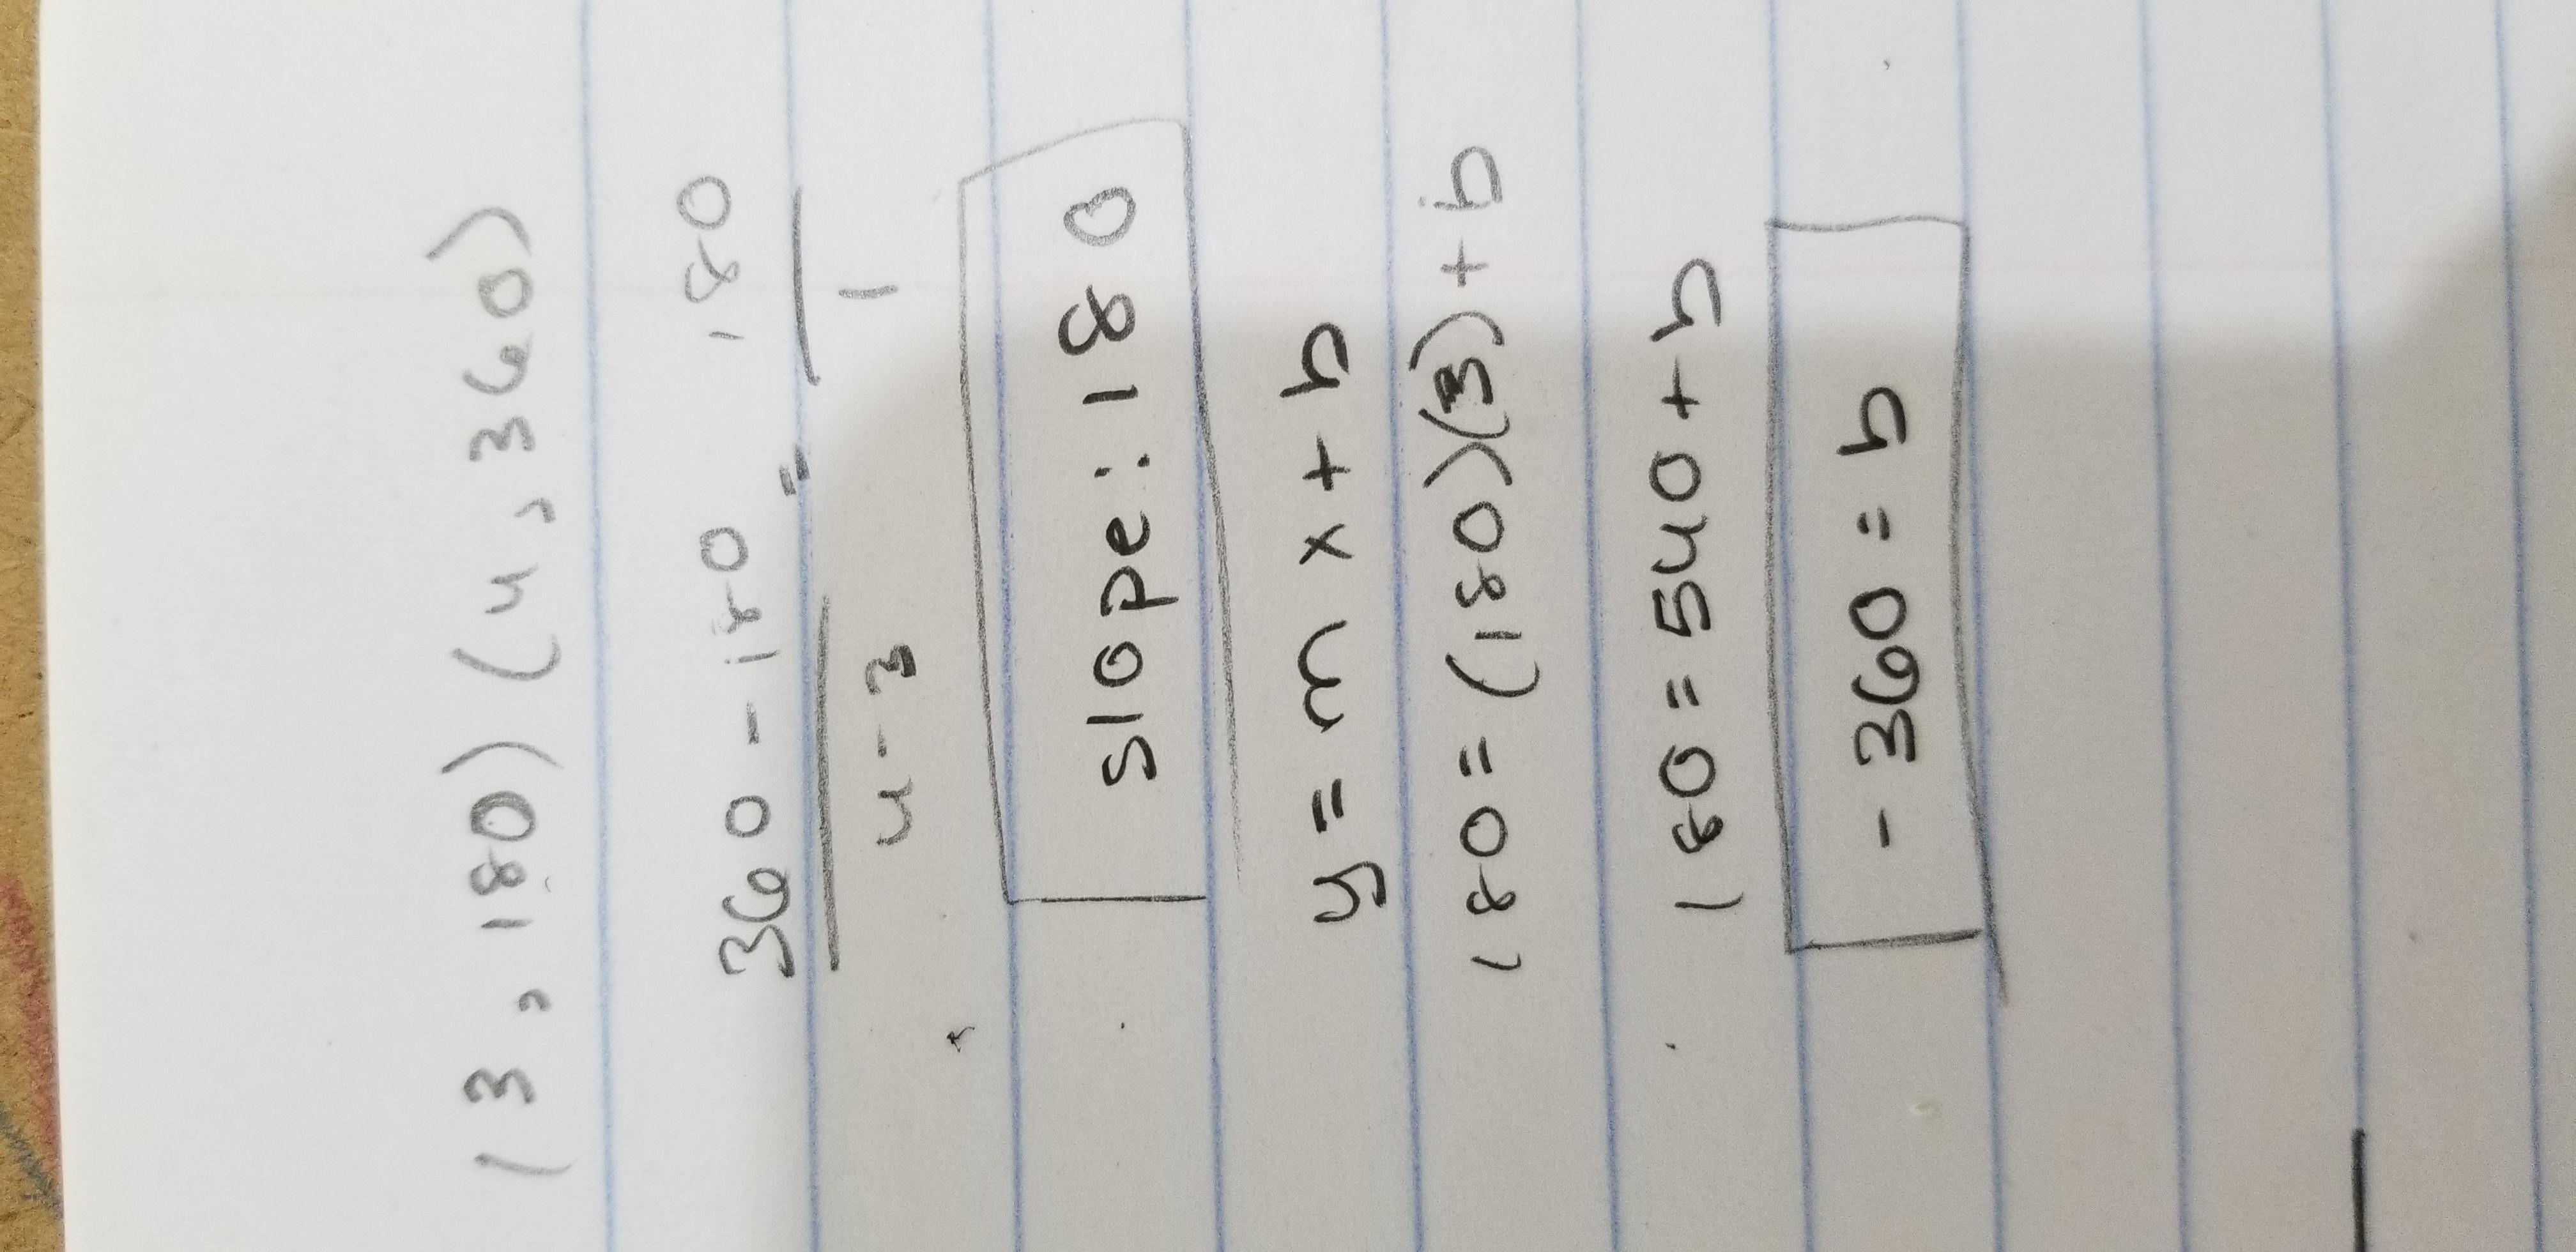 (3, 180) (4, 360)
360 - 180 = 180
4 - 3 1
slope: 180
y = mx + b
180 = (180)(3) + b
180 = 540 + b
- 360 = b